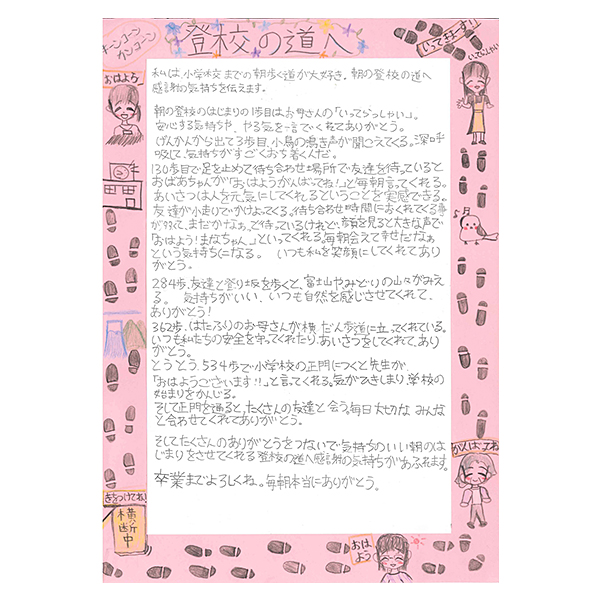 キーンコーン
カンコーン
登校の道へ
いってきまーす!!
いってらっしゃい
おはよう
私は、小学校までの朝歩く道が大好き。朝の登校の道へ
感謝の気持ちを伝えます。
朝の登校のはじまりの1歩目は、お母さんの「いってらっしゃい。」
安心する気持ちや、やる気を言でくれてありがとう。
げんかんから出て3歩目、小鳥の鳴き声が聞こえてくる。深呼
吸して、気持ちがすごくおち着くんだ。
130歩目で足を止めて待ち合わせ場所で友達を待っていると
おばあちゃんが「おはようがんばってね!」と毎朝言ってくれる。
あいさつは人を元気にしてくれるということを実感できる。
友達が小走りでかけよってくる。待ち合わせ時間におくれてくる事
が多くて、まだかなぁ。って待っているけれど、顔を見ると大きな声で
「おはよう!まなちゃん。」といってくれる。毎朝会えて幸せだなぁ
という気持ちになる。 いつも私を笑顔にしてくれてあり
がとう。
284歩、友達と登り坂を歩くと、富士山やみどりの山々がみえ
る。 気持ちがいい、いつも自然を感じさせてくれて、
ありがとう!
362歩、はたふりのお母さんが横だん歩道に立ってくれている。
いつも私たちの安全を守ってくれたり、あいさつをしてくれて、あり
がとう。
とうとう、534歩で小学校の正門につくと先生が
「おはようございます!!」と言ってくれる。気がひきしまり、学校の
始まりをかんじる。
そして正門を通ると、たくさんの友達と会う。毎日大切な みんな
と会わせてくれてありがとう。
そしてたくさんのありがとうをつないで気持ちのいい朝のは
じまりをさせてくれる登校の道へ感謝の気持ちがあふれます。
卒業までよろしくね。毎朝本当にありがとう。
がんばってね
きをつけてね!
横断中
おはよう